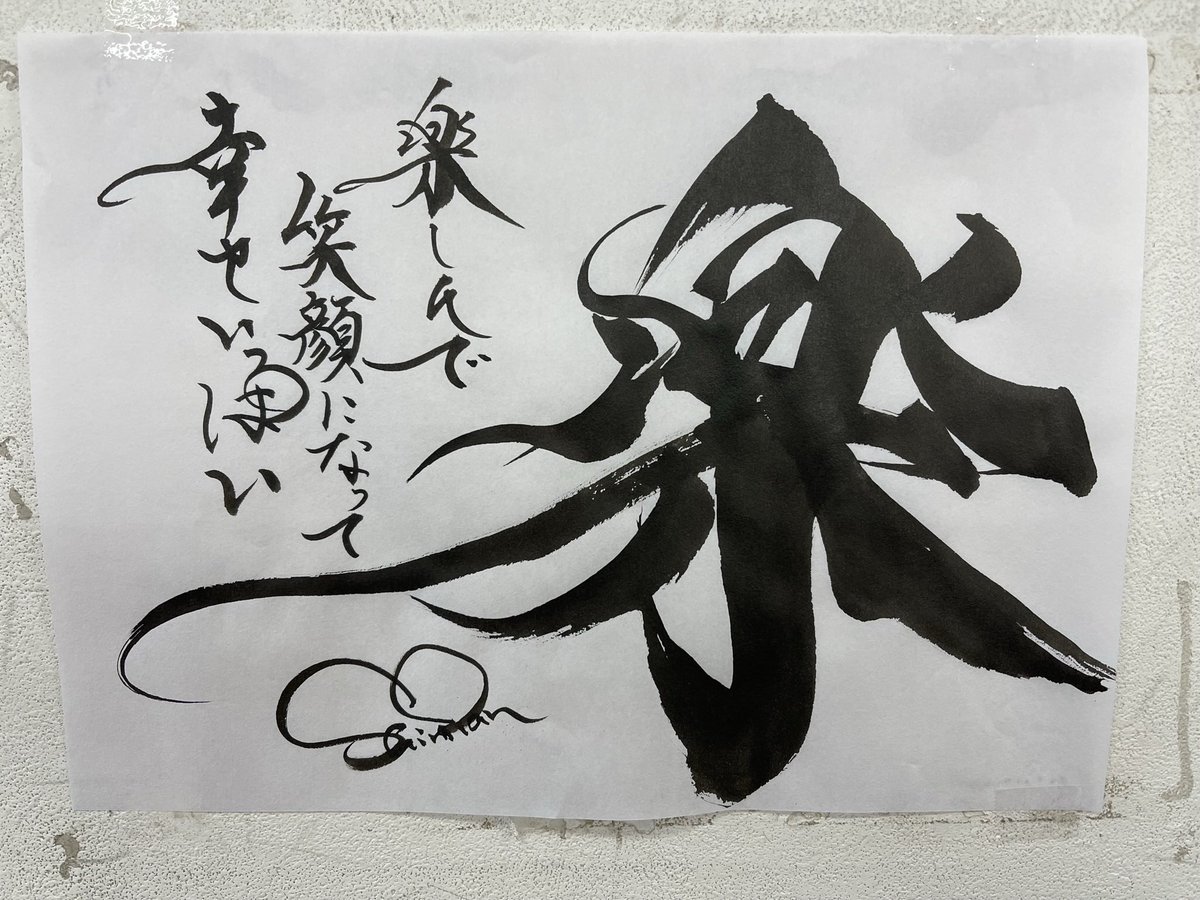 楽
楽しんで
笑顔になって
幸せいっぱい